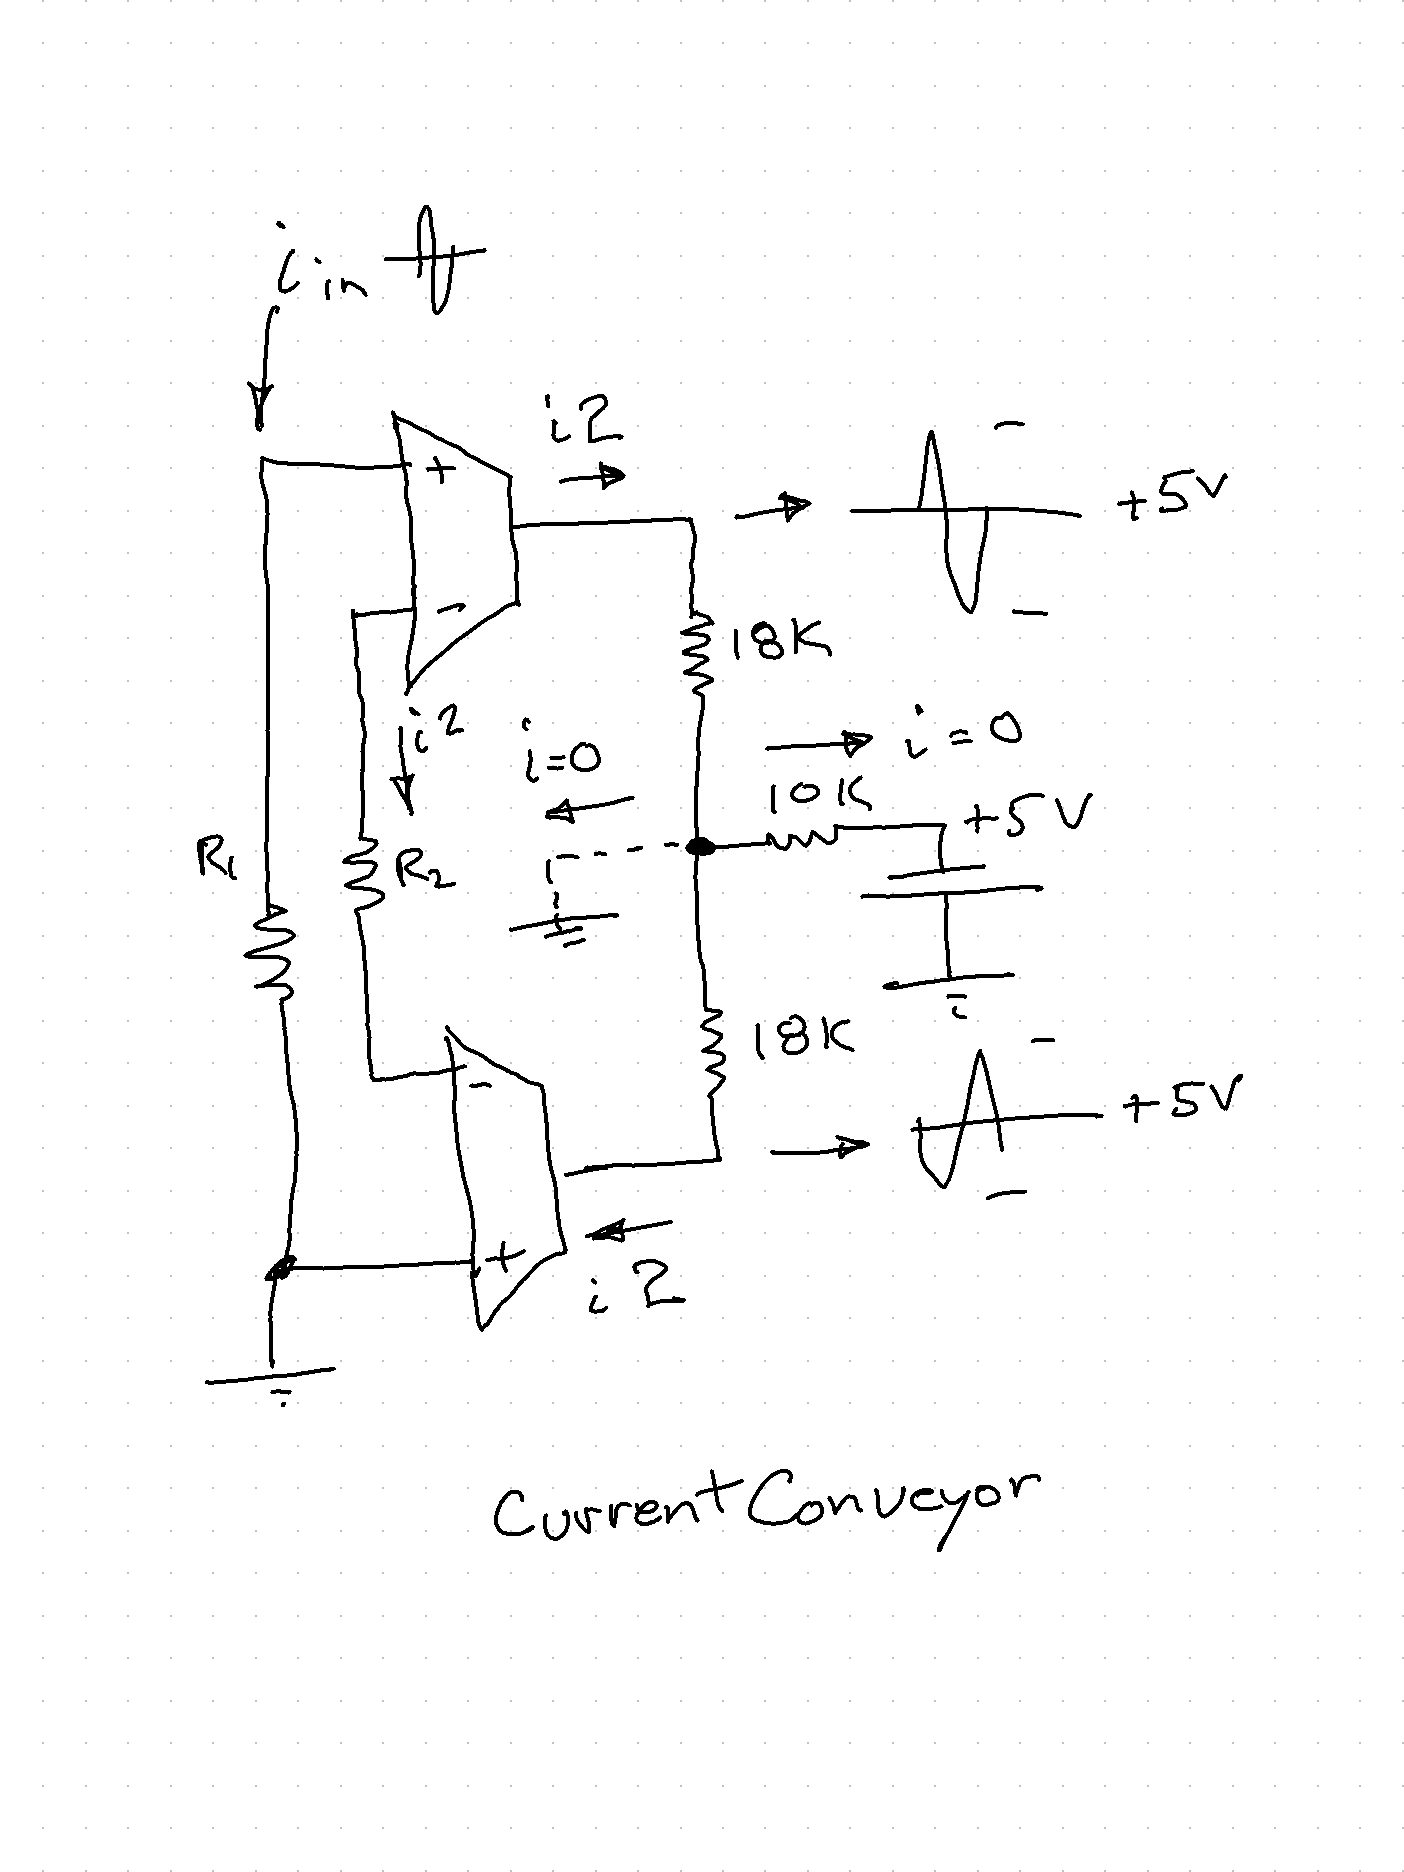 i in
i2
+
+5V
-
18K
i2
i=0
i=0
10K
+5V
R1
R2
18K
-
+5V
+
i2
Current Conveyor